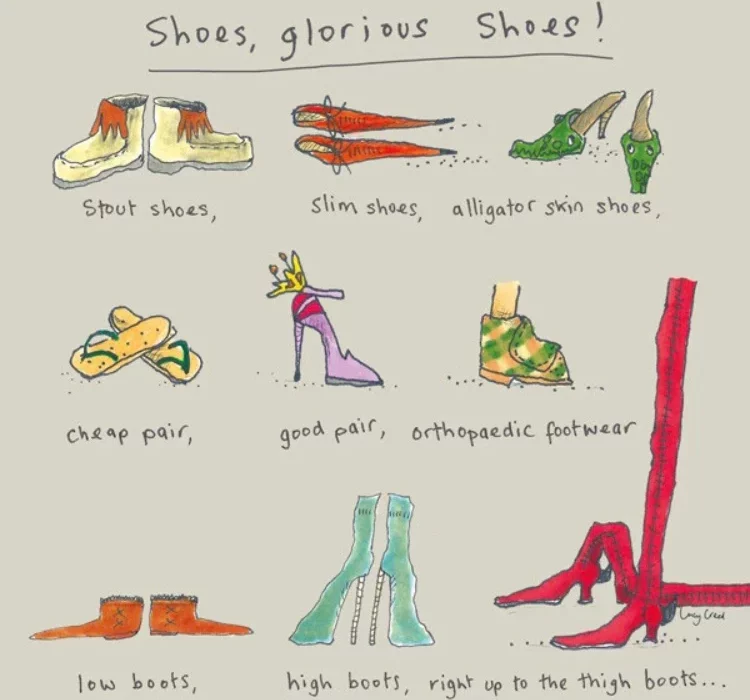 Shoes, glorious Shoes!
Stout shoes,
slim shoes,
alligator skin shoes,
cheap pair,
good pair,
orthopaedic footwear
low boots,
high boots,
right up to the thigh boots...